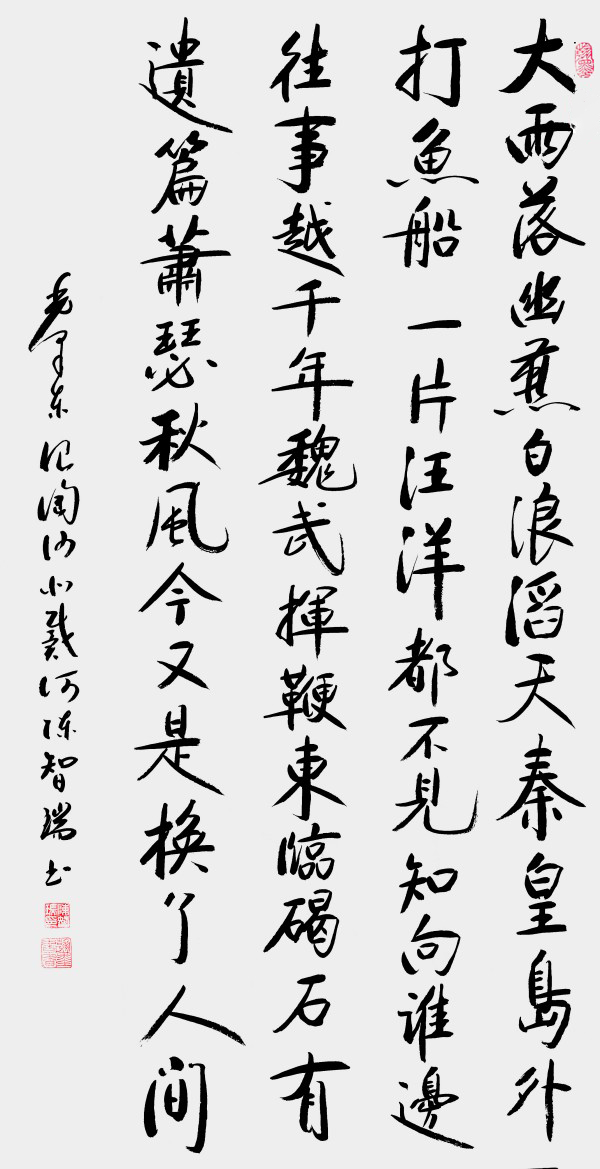 大雨落幽燕白浪滔天秦皇島外
打魚船一片汪洋都不見知向誰邊
往事越千年魏武揮鞭東臨碣石有
遺篇蕭瑟秋風今又是換了人間
毛澤東浪淘沙北戴河陈智瑞书